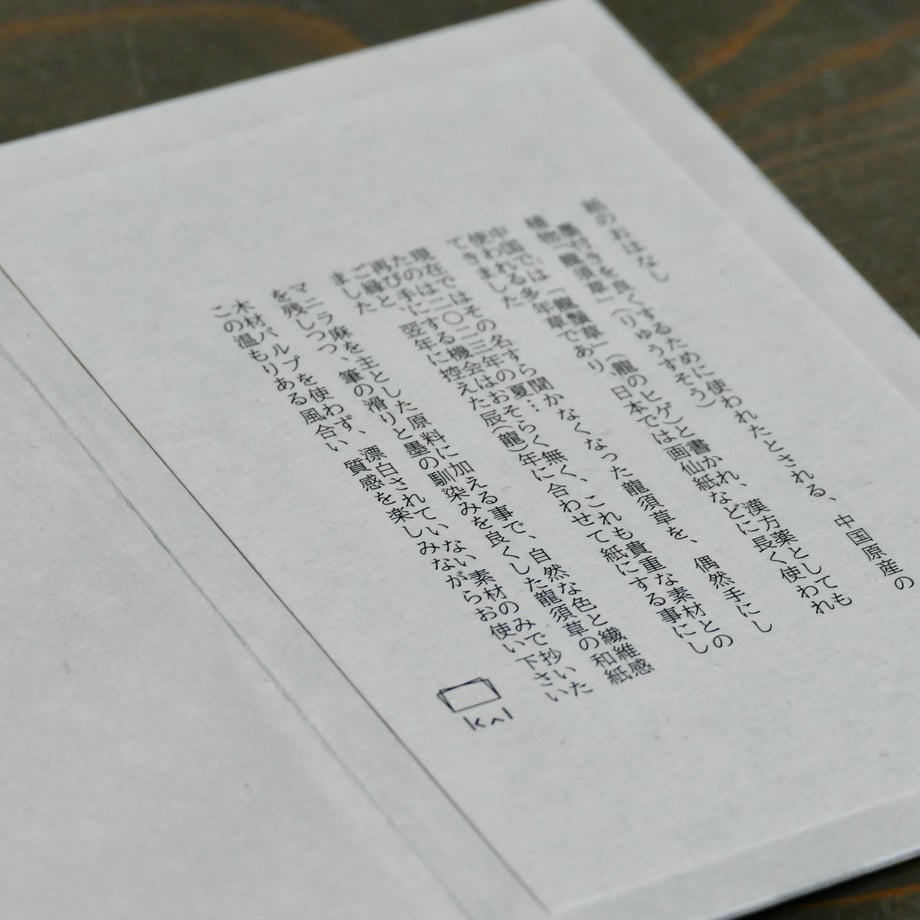 紙のおはなし
墨付きを良くするために使われたとされる、中国原産の
植物「龍須草」(りゅうすそう)
中国では「龍鬚草」(龍のヒゲ)と書かれ、漢方薬としても
使われる多年草であり 日本では画仙紙などに長く使われ
てきました
現在ではその名すら聞かなくなった龍須草を、偶然手にし
たのは二〇二三年の夏…
再び手にする機会はおそらく無く、これも貴重な素材との
ご縁と、翌年に控えた辰(龍)年に合わせて紙にする事にし
ました
マニラ麻を主とした原料に加える事で、自然な色と繊維感
を残しつつ、筆の滑りと墨の馴染みを良くした龍須草の和紙
木材パルプを使わず、漂白されていない素材のみで抄いた
この温もりある風合い 質感を楽しみながらお使い下さい